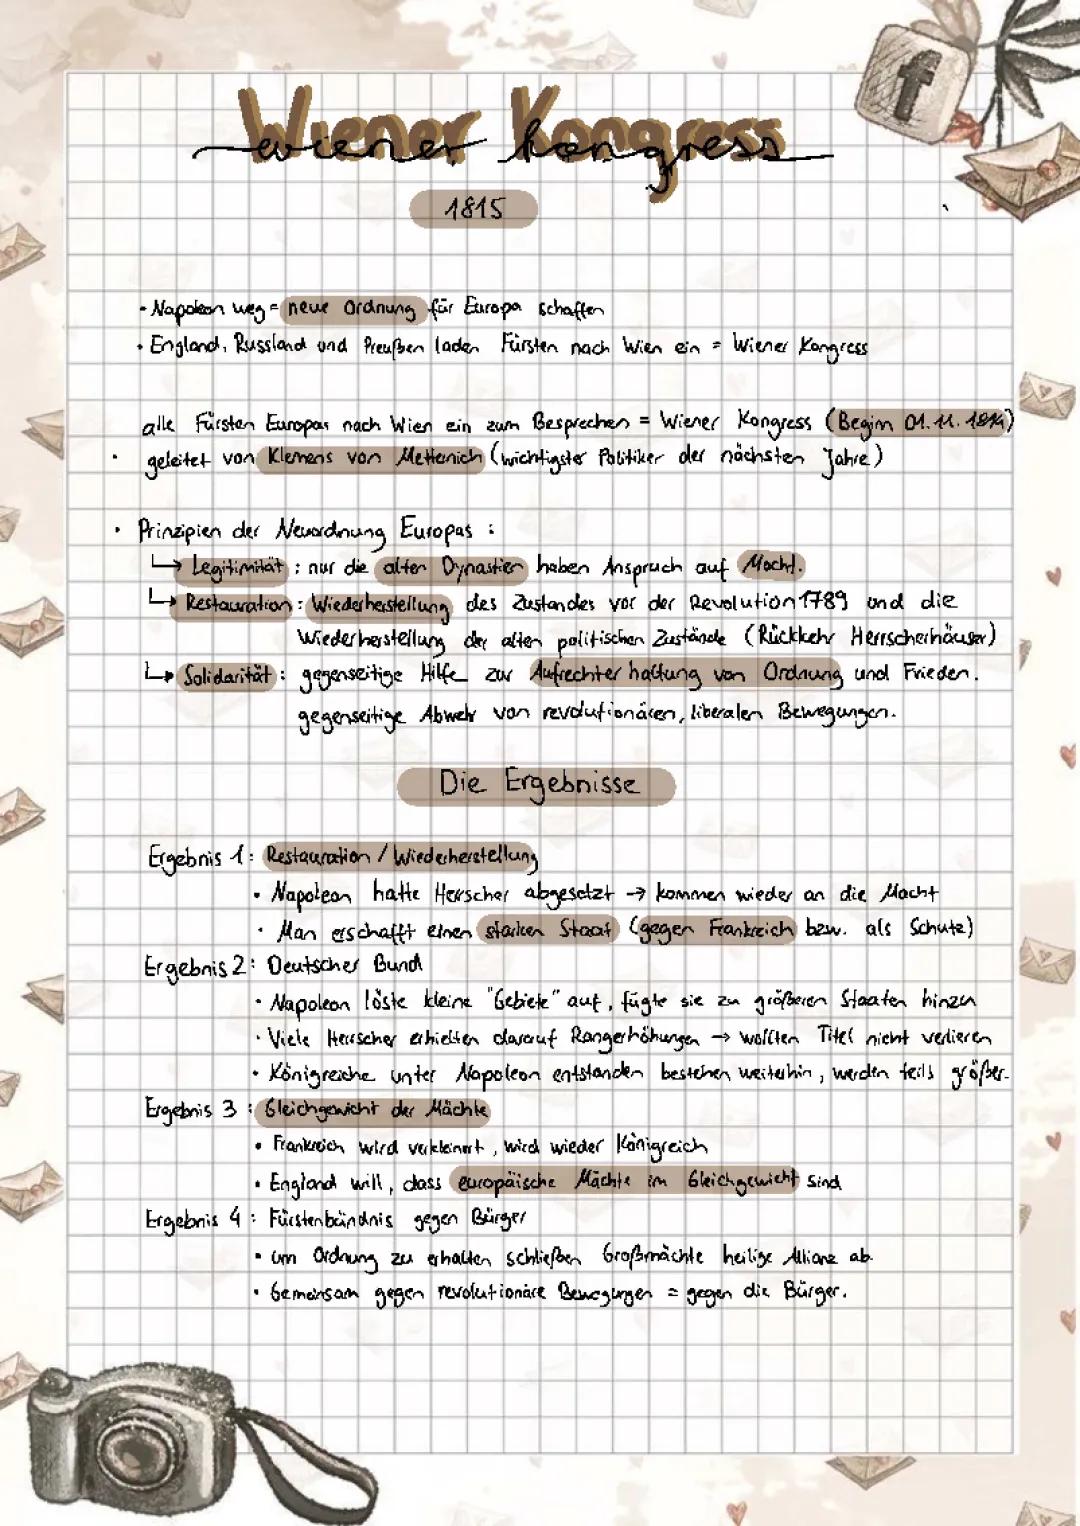 Wiener Kongress
wiener kongress
f
1815
• Napoleon weg = neue Ordnung für Europa schaffen
• England, Russland und Preußen laden Fürsten nach Wien ein = Wiener Kongress
alle Fürsten Europas nach Wien ein zum Besprechen = Wiener Kongress (Beginn 01.11.1814)
• geleitet von Klemens von Metternich (wichtigster Politiker der nächsten Jahre)
• Prinzipien der Neuordnung Europas :
↳ Legitimität : nur die alten Dynastien haben Anspruch auf Macht.
↳ Restauration : Wiederherstellung des Zustandes vor der Revolution 1789 und die
Wiederherstellung der alten politischen Zustände (Rückkehr Herrscherhäuser)
↳ Solidarität : gegenseitige Hilfe zur Aufrechterhaltung von Ordnung und Frieden.
gegenseitige Abwehr von revolutionären, liberalen Bewegungen.
Die Ergebnisse
Ergebnis 1 : Restauration / Wiederherstellung
• Napoleon hatte Herrscher abgesetzt → kommen wieder an die Macht
• Man erschafft einen starken Staat (gegen Frankreich bzw. als Schutz)
Ergebnis 2 : Deutscher Bund
• Napoleon löste kleine "Gebiete" auf, fügte sie zu größeren Staaten hinzu
• Viele Herrscher erhielten darauf Rangerhöhungen → wollten Titel nicht verlieren
• Königreiche unter Napoleon entstanden bestehen weiterhin, werden teils größer.
Ergebnis 3 : Gleichgewicht der Mächte
• Frankreich wird verkleinert, wird wieder Königreich
• England will, dass europäische Mächte im Gleichgewicht sind
Ergebnis 4 : Fürstenbündnis gegen Bürger
• um Ordnung zu erhalten schließen Großmächte heilige Allianz ab.
• Gemeinsam gegen revolutionäre Bewegungen = gegen die Bürger.